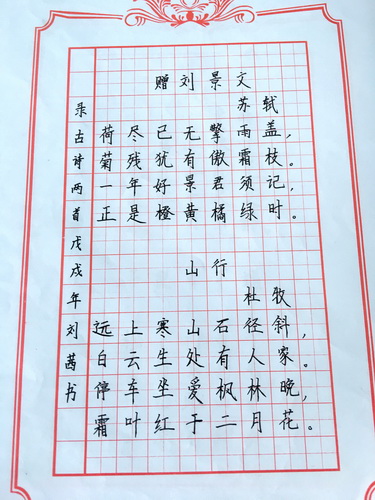 赠刘景文
苏轼
荷尽已无擎雨盖，
菊残犹有傲霜枝。
一年好景君须记，
正是橙黄橘绿时。
山行
杜牧
远上寒山石径斜，
白云生处有人家。
停车坐爱枫林晚，
霜叶红于二月花。
录古诗两首戊戌年刘茜书